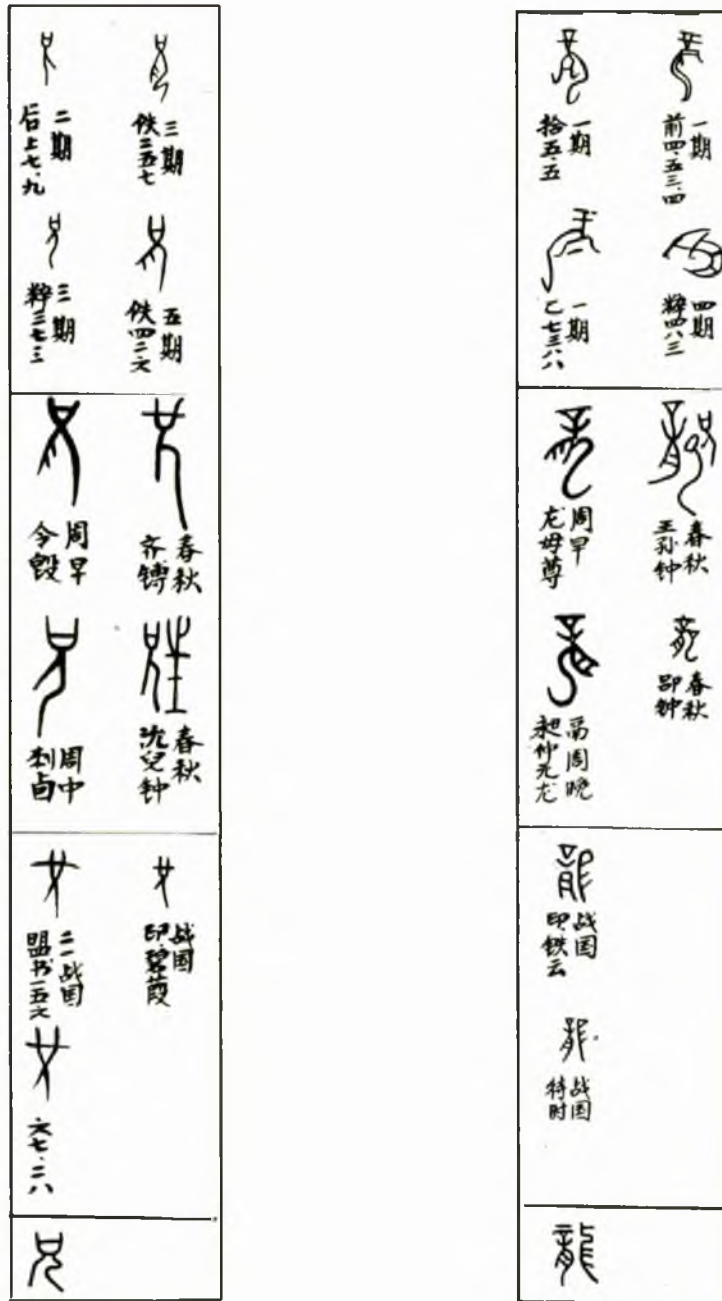 二期
后上七.九
三期
佚二五七
三期
粹三七三
五期
佚四二六
周早
令毁
春秋
齐镈
周中
刺卣
春秋
沇兒钟
战国
盟书一五六
战国
六七.二八
兄
一期
拾五.五
一期
前四.五三.四
一期
乙七三八八
四期
粹四八三
周早
龙母尊
春秋
王孙钟
周晚
昶仲无龙
春秋
郘钟
战国
印.铁云
战国
特时
龍